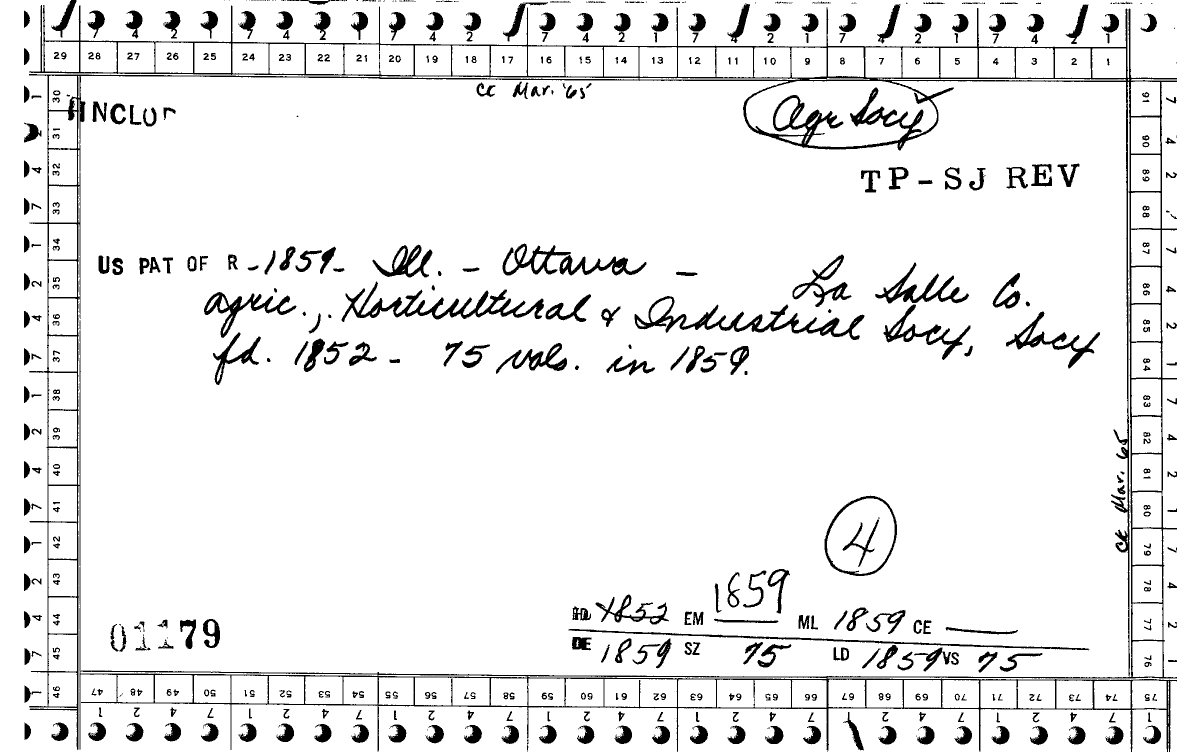 7 4 2 1 7 4 2 1 7 4 2 1 7 4 2 1 7 4 2 1 7 4 2 1 7 4 2 1
29 28 27 26 25 24 23 22 21 20 19 18 17 16 15 14 13 12 11 10 9 8 7 6 5 4 3 2 1
CE Mar. '65
Agr Socy
TP-SJ REV
US PAT OF R - 1859 - Ill. - Ottawa -
La Salle Co.
Agric., Horticultural & Industrial Socy, Socy
fd. 1852 - 75 vols. in 1859.
CE Mar. '65
4
1852 EM 1859 ML 1859 CE
DE 1859 SZ 75 LD 1859 VS 75
01179
30 31 32 33 34 35 36 37 38 39 40 41 42 43 44 45 46
91 90 89 88 87 86 85 84 83 82 81 80 79 78 77 76 75
47 48 49 50 51 52 53 54 55 56 57 58 59 60 61 62 63 64 65 66 67 68 69 70 71 72 73 74 75
1 2 4 7 1 2 4 7 1 2 4 7 1 2 4 7 1 2 4 7 1 2 4 7 1 2 4 7 1